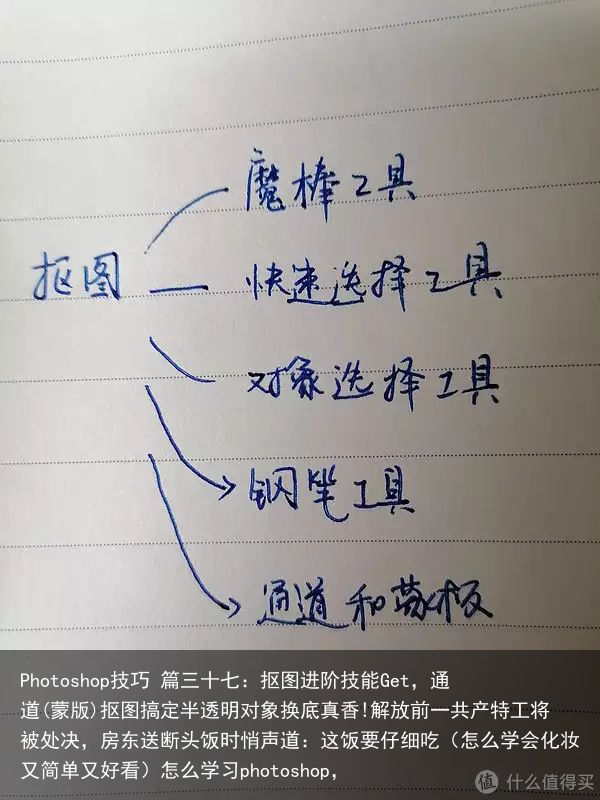 魔棒工具
抠图
快速选择工具
对象选择工具
钢笔工具
通道和蒙板
Photoshop技巧 篇三十七：抠图进阶技能Get，通
道(蒙版)抠图搞定半透明对象换底真香!解放前一共产特工将
被处决，房东送断头饭时悄声道：这饭要仔细吃（怎么学会化妆
又简单又好看）怎么学习photoshop，
值 什么值得买